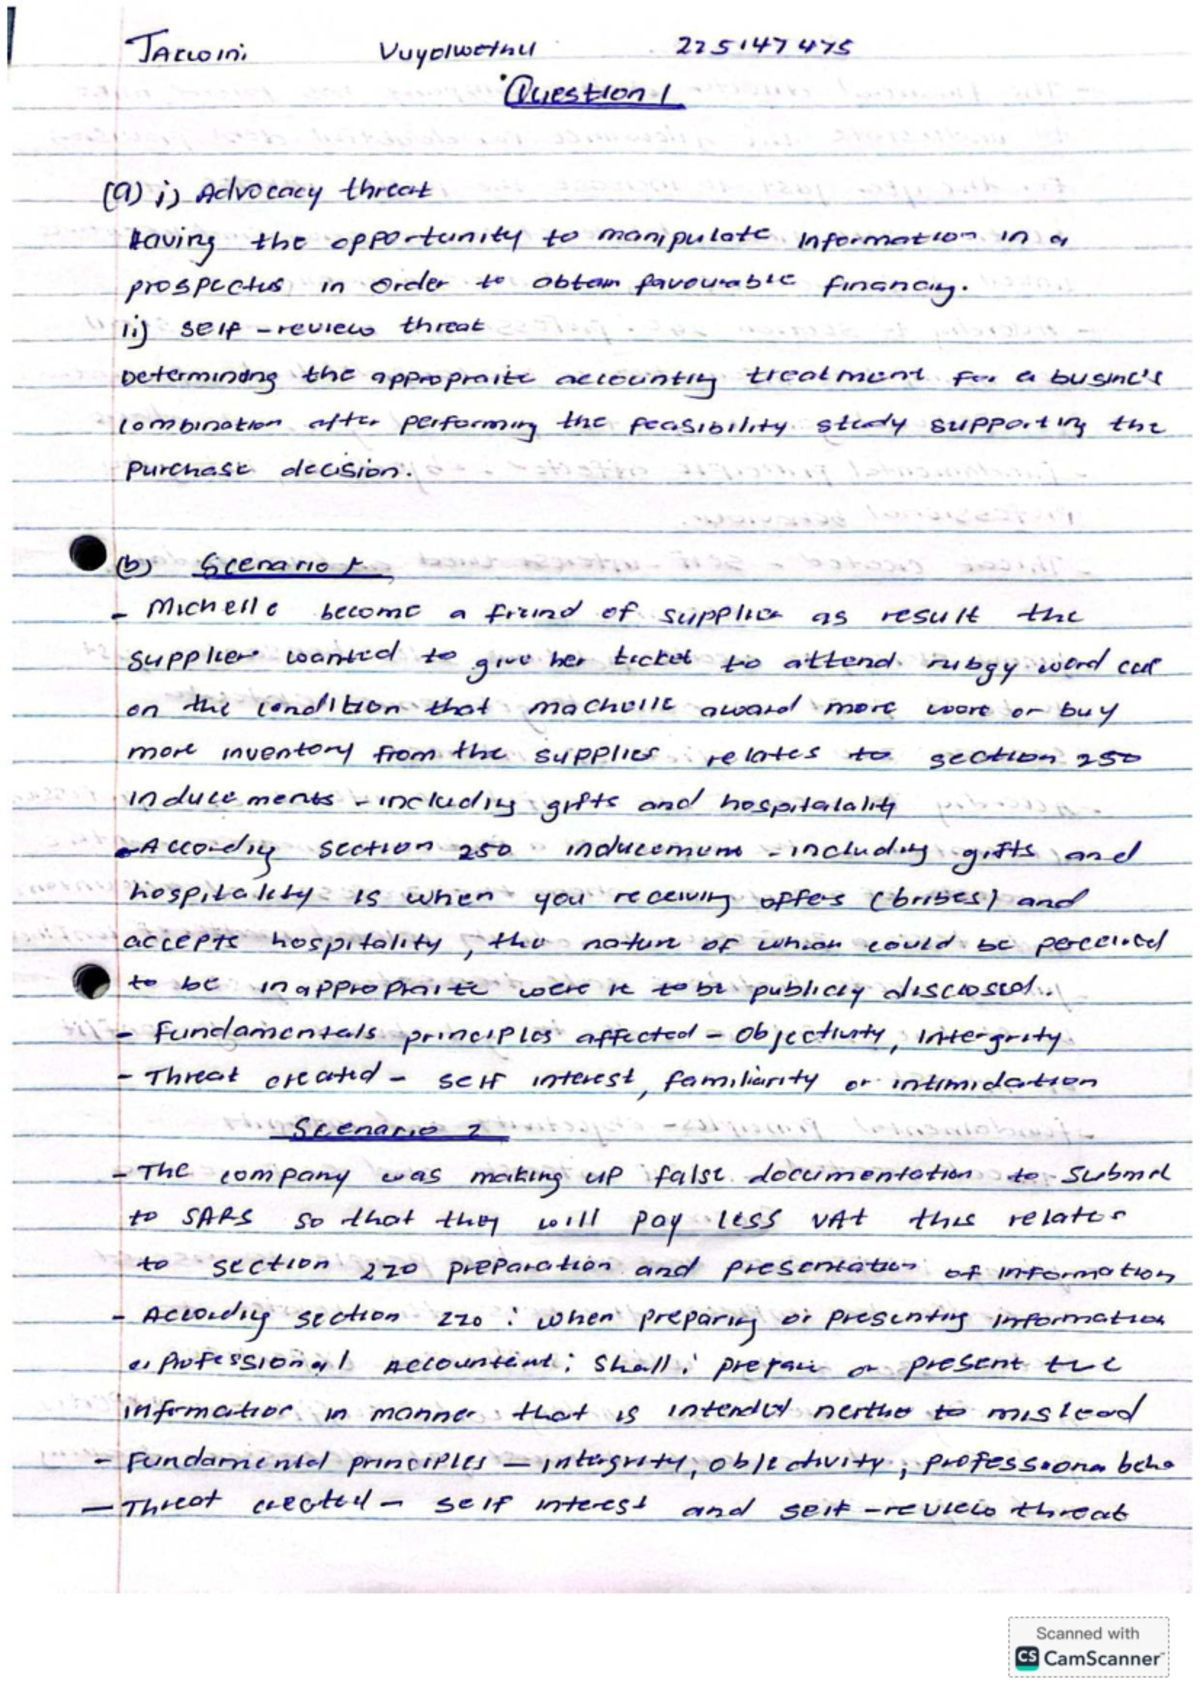 Vuyolwethu 225147475
Question 1
(a) i) Advocacy threat
Having the opportunity to manipulate information in a
prospectus in order to obtain favourable financing.
ii) self-review threat
Determining the appropraite accounting treatment for a busine's
combination after performing the feasibility study supporting the
purchase decision.
(b) Scenario 1
- Michelle become a freind of supplier as result the
supplier wanted to give her ticket to attend rubgy word cup
on the condition that machelle award more work or buy
more inventory from the supplier relates to section 250
inducements - including gifts and hospitalality
- According section 250 inducement - including gifts and
hospitality is when you receiving offers (bribes) and
accepts hospitality, the nature of which could be perceived
to be inappropraite were it to be publicly disclosed.
- Fundamentals principles affected - Objectivity, Intergrity
- Threat created - self interest, familiarity or intimidation
Scenario 2
- The company was making up false documentation to submit
to SARS so that they will pay less VAT this relates
to section 220 preparation and presentation of information
- According section 220 : when preparing or presenting information
a Professional Accountant; Shall; prepare or present the
information in manner that is intended neither to mislead
- Fundamental principles - intergrity, objectivity, professional beha
- Threat created - self interest and self-review threat
Scanned with
CS CamScanner